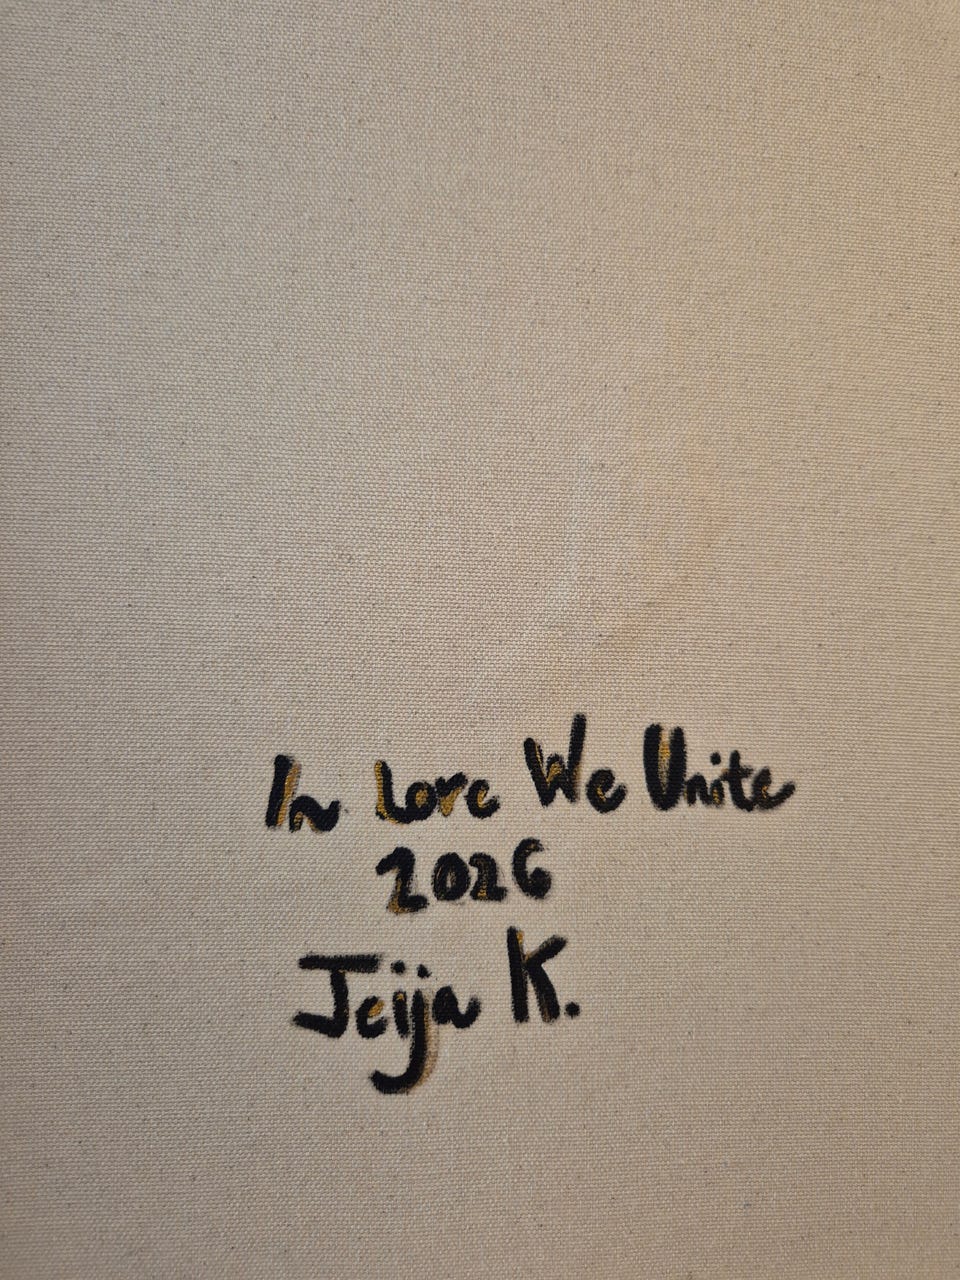 In Love We Unite
2026
Jeija K.